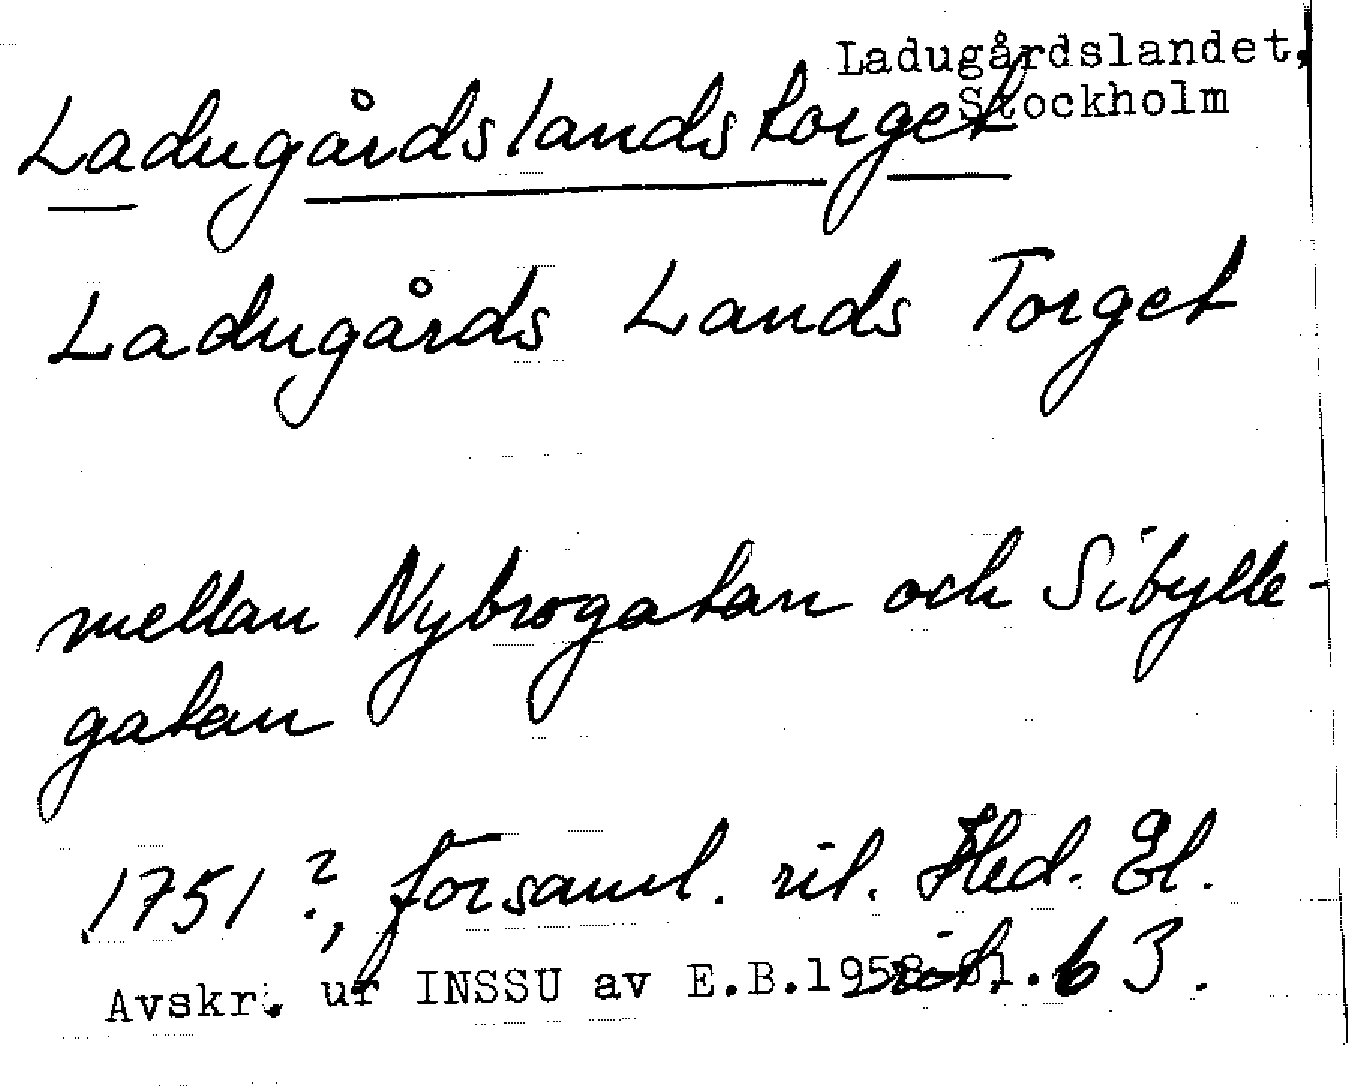 Ladugårdslandet,
Stockholm
Ladugårdslandstorget
Ladugårds Lands Torget
mellan Nybrogatan och Sibylle-
gatan
1751?, församl. rit. Hed. El.
röt. b 3.
Avskr. ur INSSU av E.B.1958-61.